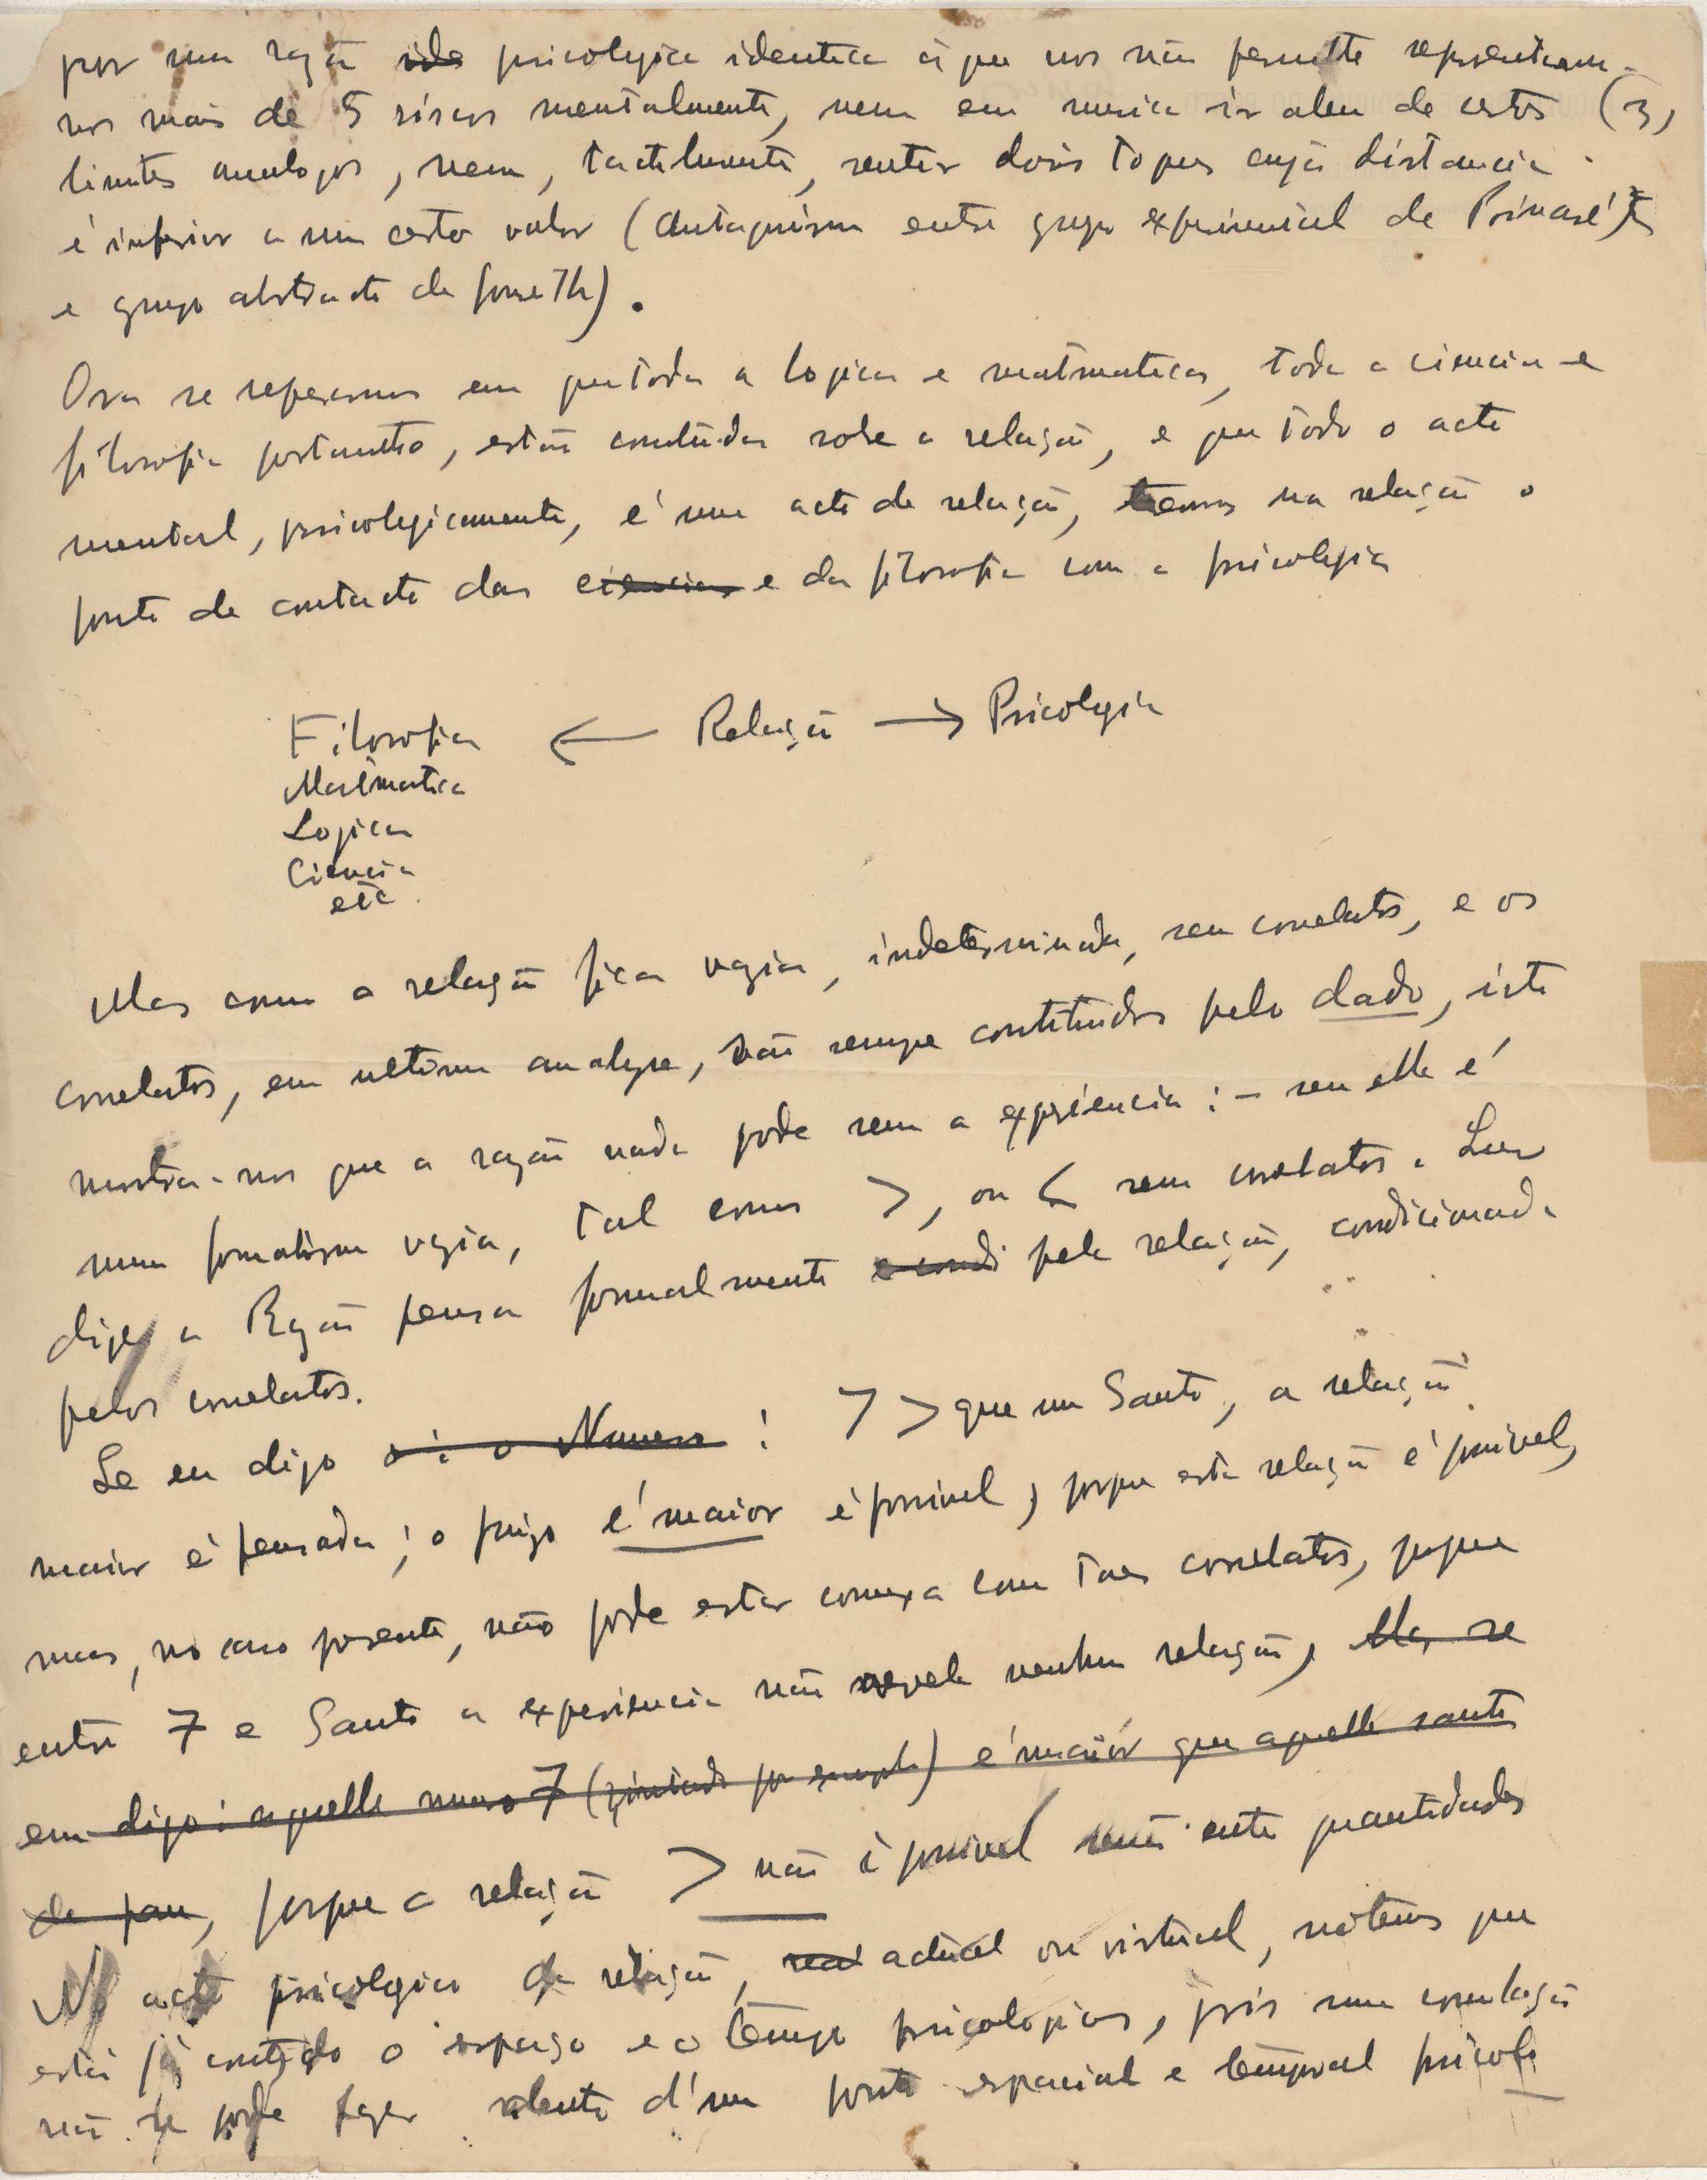 por uma razão ide psicologica identica á que nos não permitte representarmo-
nos mais de 5 riscos mentalmente, nem em musica ir alem de certos (3,
limites analogos, nem, tactilmente, sentir dois toques cuja distancia
é inferior a um certo valor (antagonismo entre grupo experiencial de Poincaré
e grupo abstracto de
Ora se repararmos em que toda a logica e matematica, toda a ciencia e
filosofia portantto, estão construidas sobre a relação, e que todo o acto
mental, psicologicamente, é um acto de relação, temos na relação o
ponto de contacto das ciencias e da filosofia com a psicologia
Filosofia ← Relação → Psicologia
Matematica
Logica
Ciencia
etc
Mas como a relação fica vazia, indeterminada, sem correlatos, e os
correlatos, em ultima analyse, são sempre constituidos pelo dado, isto
mostra-nos que a razão nada pode sem a experiencia: – sem ella é
um formalismo vazio, tal como >, ou < sem correlatos.
dizer a Razão pensa formalmente e condi pela relação, condicionada
pelos correlatos.
Se eu digo o Numero : 7 > que um Santo, a relação
maior é pensada; o juizo é maior é possivel, porque esta relação é possivel,
mas, no caso presente, não pode estar conexa com taes correlatos, porque
entre 7 e Santo a experiencia não revela nenhuma relação, Mas se
eu digo: aquelle numero 7 (pintado por exemplo) é maior que aquelle santo
de pau, porque a relação > não é possivel senão entre quantidades
No acto psicologico da relação, real actual ou virtual, notemos que
está já contido o espaço e o tempo psicologicos, pois uma correlação
não se pode fazer dentro d'um ponto espacial e temporal psicolo